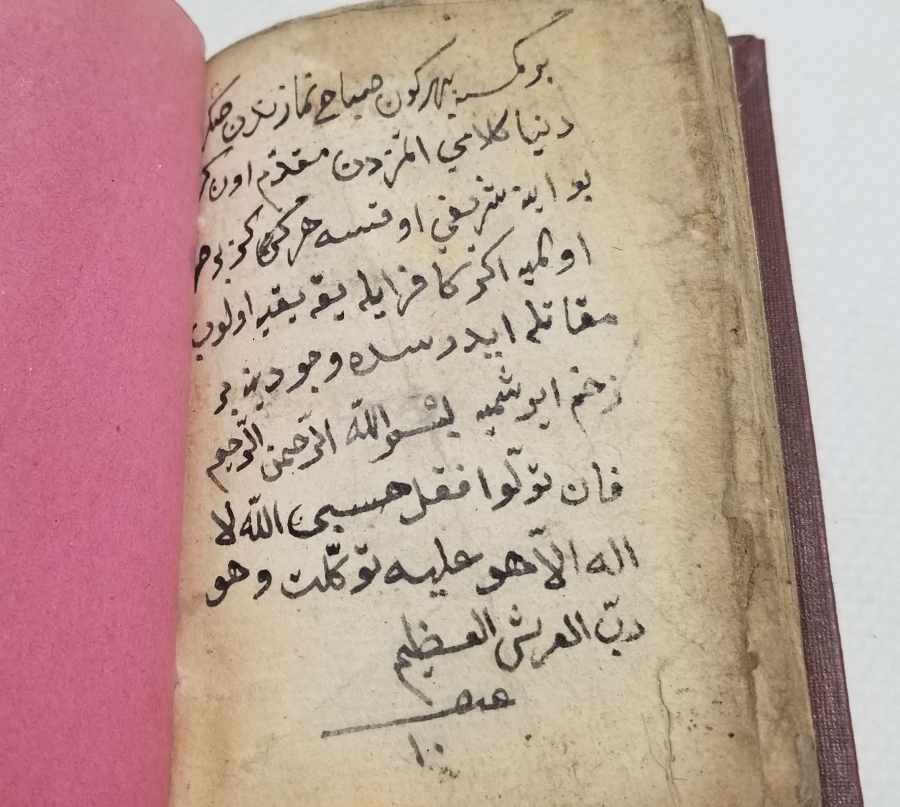 بر كمسه هر كون صباح نمازندن صكره
دنيا كلامي ايتمزدن مقدم اون كره
بو ايه شريفي اوقسه هركز اكا بر ضرر
اولميه اكر كافر ايله يقه يقيه اولوب
مقاتله ايدرسه وجودينه بر
زخم ايرشميه بسم الله الرّحمن الرّحيم
فان تولّوا فقل حسبى الله لا
اله الاّ هو عليه توكّلت وهو
ربّ العرش العظيم
١٠